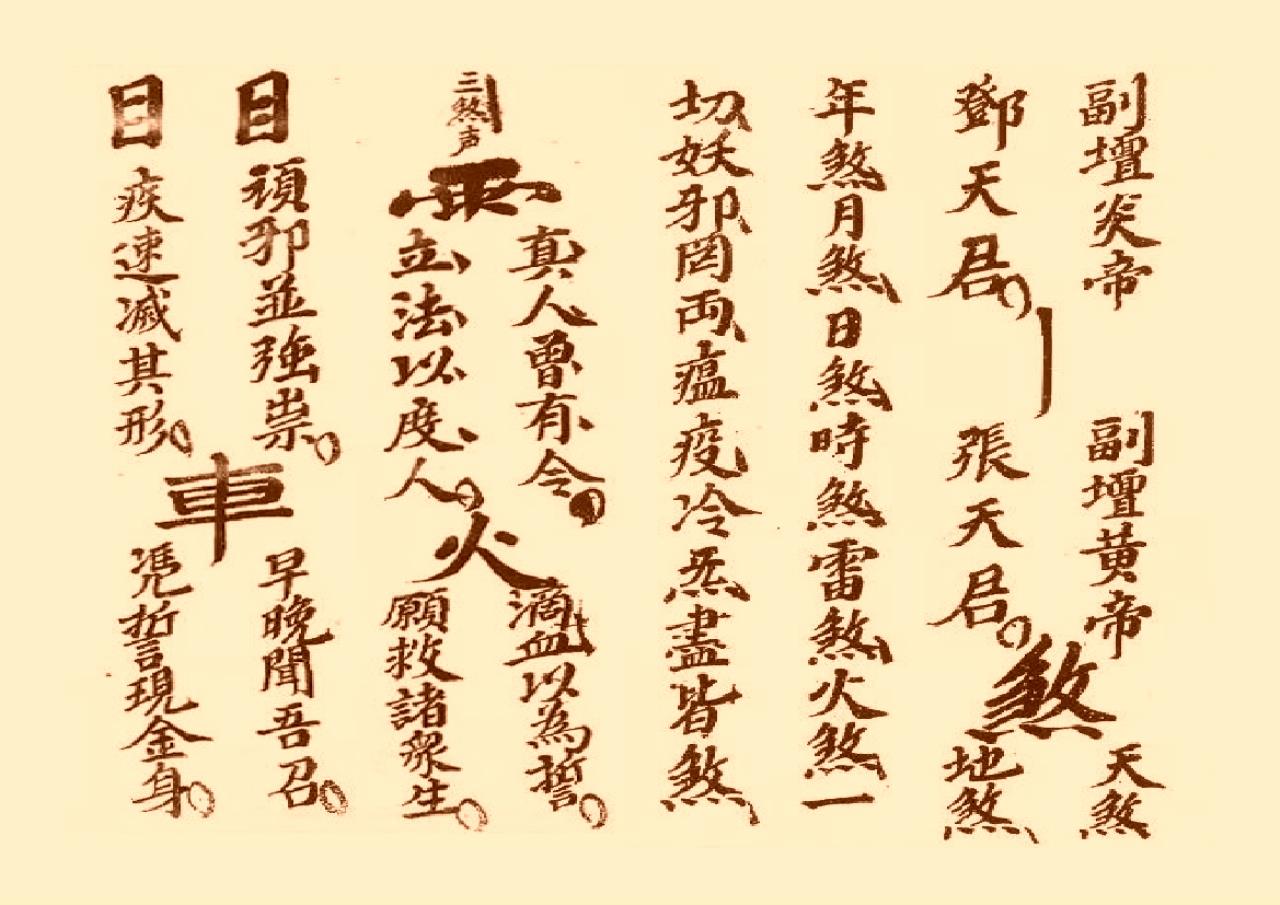 副壇炎帝
鄧天君
副壇黃帝
張天君
煞
天煞
地煞
年煞月煞日煞時煞雷煞火煞一
切妖邪罔両瘟疫冷炁盡皆煞
三煞声
雨
真人曾有令
立法以度人
火
滴血以為誓
願救諸衆生
日
頑邪並強祟
日
疾速滅其形
車
早晚聞吾召
凴誓現金身